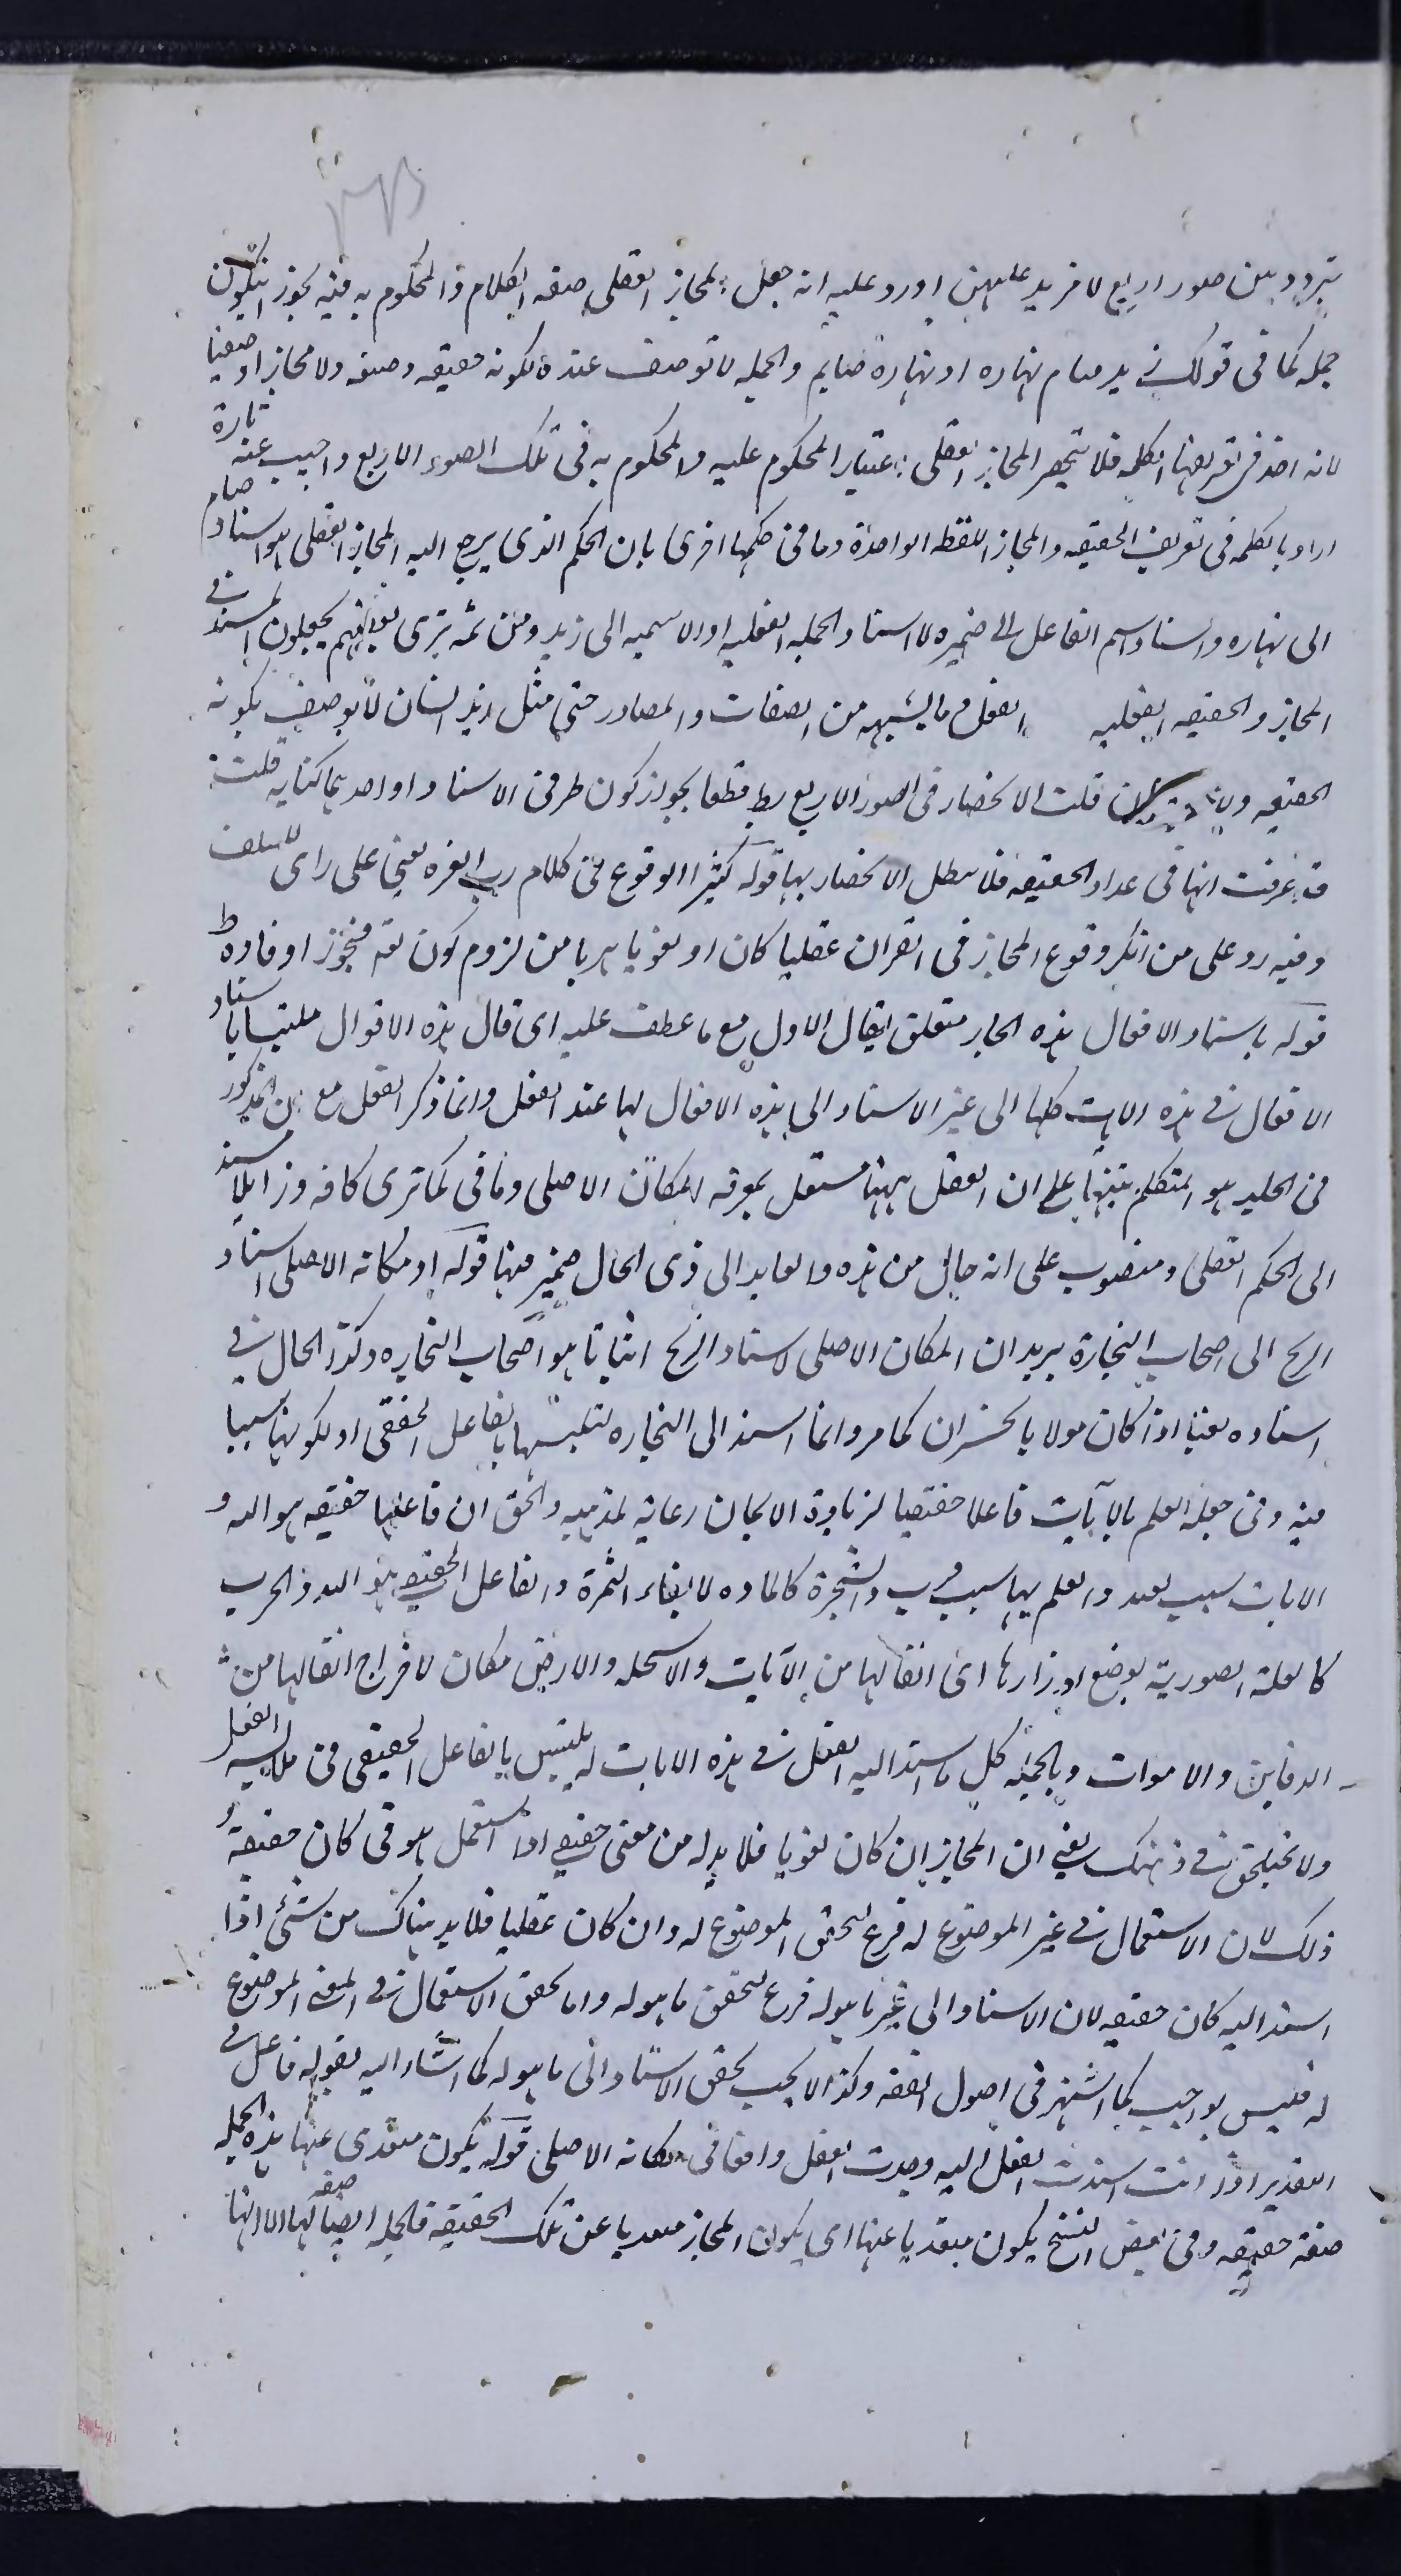 يتردد بين صور اربع لا مزيد عليهن اورد عليه انه جعل المجاز العقلى صفه الكلام والمحكوم به فيه يجوز ان يكون
جمله كما فى قولك زيد صام نهاره او نهاره صايم والجمله لا توصف عنده بكونه حقيقه وصفيه ولا مجازا وصفيا
لانه اخذ فى تعريفها الكلمه فلا ينحصر المجاز العقلى باعتبار المحكوم عليه والمحكوم به فى تلك الصور الاربع واجيب عنه تارة
اراد بالكلمه فى تعريف الحقيقه والمجاز اللفظه الواحدة وما فى حكمها اخرى بان الحكم الذى يرجع اليه المجاز العقلى هو اسناد صام
الى نهاره واسناد اسم الفاعل الى ضميره لا اسناد الجمله الفعليه او الاسميه الى زيد ومن ثمه ترى بعضهم يجعلون المسند فى
المجاز والحقيقه العقليه الفعل وما يشبهه من الصفات والمصادر حتى مثل زيد انسان لا يوصف بكونه
الحقيقه ولا فان قلت الانحصار فى الصور الاربع بط قطعا بجواز كون طرفى الاسناد او احديهما كنايه قلت
قد عرفت انها فى عداد الحقيقه فلا يبطل الانحصار بها قوله كثير الوقوع فى كلام رب العزه يعنى على راى السلف
وفيه رد على من انكر وقوع المجاز فى القران عقليا كان او لغويا هربا من لزوم كون الله متجوزا وفاده ط
قوله باسناد الافعال هذه الجار متعلق بقال الاول مع ما عطف عليه اى قال هذه الاقوال ملتبسا باسناد
الافعال فى هذه الايات كلها الى غير الاسناد الى هذه الافعال لها عند العقل وانما ذكر العقل مع ان المذكور
فى الحد هو المتكلم تنبيها على ان العقل ههنا مستقل بمعرفه المكان الاصلى وما فى كما ترى كافه وزايلا مسند
الى الحكم العقلى ومنصوب على انه حال من هذه والعايد الى ذى الحال ضمير منها قوله او مكانه الاصلى اسناد
الربح الى اصحاب التجارة يريد ان المكان الاصلى لاسناد الربح اثباتا هو اصحاب التجاره وكذا الحال فى
اسناده نفيا اذا كان مولا بالخسران كما مر وانما اسند الى التجاره لتلبسها بالفاعل الحقيقى او لكونها سببا
فيه وفى جعله العلم بالآيات فاعلا حقيقيا لزيادة الايمان رعايه لمذهبه والحق ان فاعلها حقيقه هو الله و
الايات سبب بعيد والعلم بها سبب قريب والشجرة كالماده لايتاء الثمرة والفاعل الحقيقى هو الله والحرب
كالعلة الصورية لوضع اوزارها اى اثقالها من الآيات والاسحله والارض مكان لاخراج اثقالها من
الدفاين والاموات وبالجمله كل ما اسند اليه الفعل فى هذه الايات له تلبس بالفاعل الحقيقى فى ملابسه الفعل
ولا يختلجن فى ذهنك يعنى ان المجاز ان كان لغويا فلا بد له من معنى حقيقى اذا استعمل هو فى كان حقيقه و
ذلك لان الاستعمال فى غير الموضوع له فرع لتحقق الموضوع له وان كان عقليا فلا بد هناك من شئ اذا
اسند اليه كان حقيقه لان الاسناد الى غير ما هو له فرع لتحقق ما هو له واما تحقق الاستعمال فى المعنى الموضوع
له فليس بواجب كما اشتهر فى اصول الفقه وكذا لا يجب تحقق الاسناد الى ما هو له كما اشار اليه بقوله فاعل فى
التقدير اذا انت اسندت الفعل اليه وجدت الفعل واقعا فى مكانه الاصلى قوله يكون متعدى عنها هذه الجمله
صفة حقيقه وفى بعض النسخ يكون متعديا عنها اى يكون المجاز متعديا عن تلك الحقيقه فالجمله ايضا صفه لها الا انها